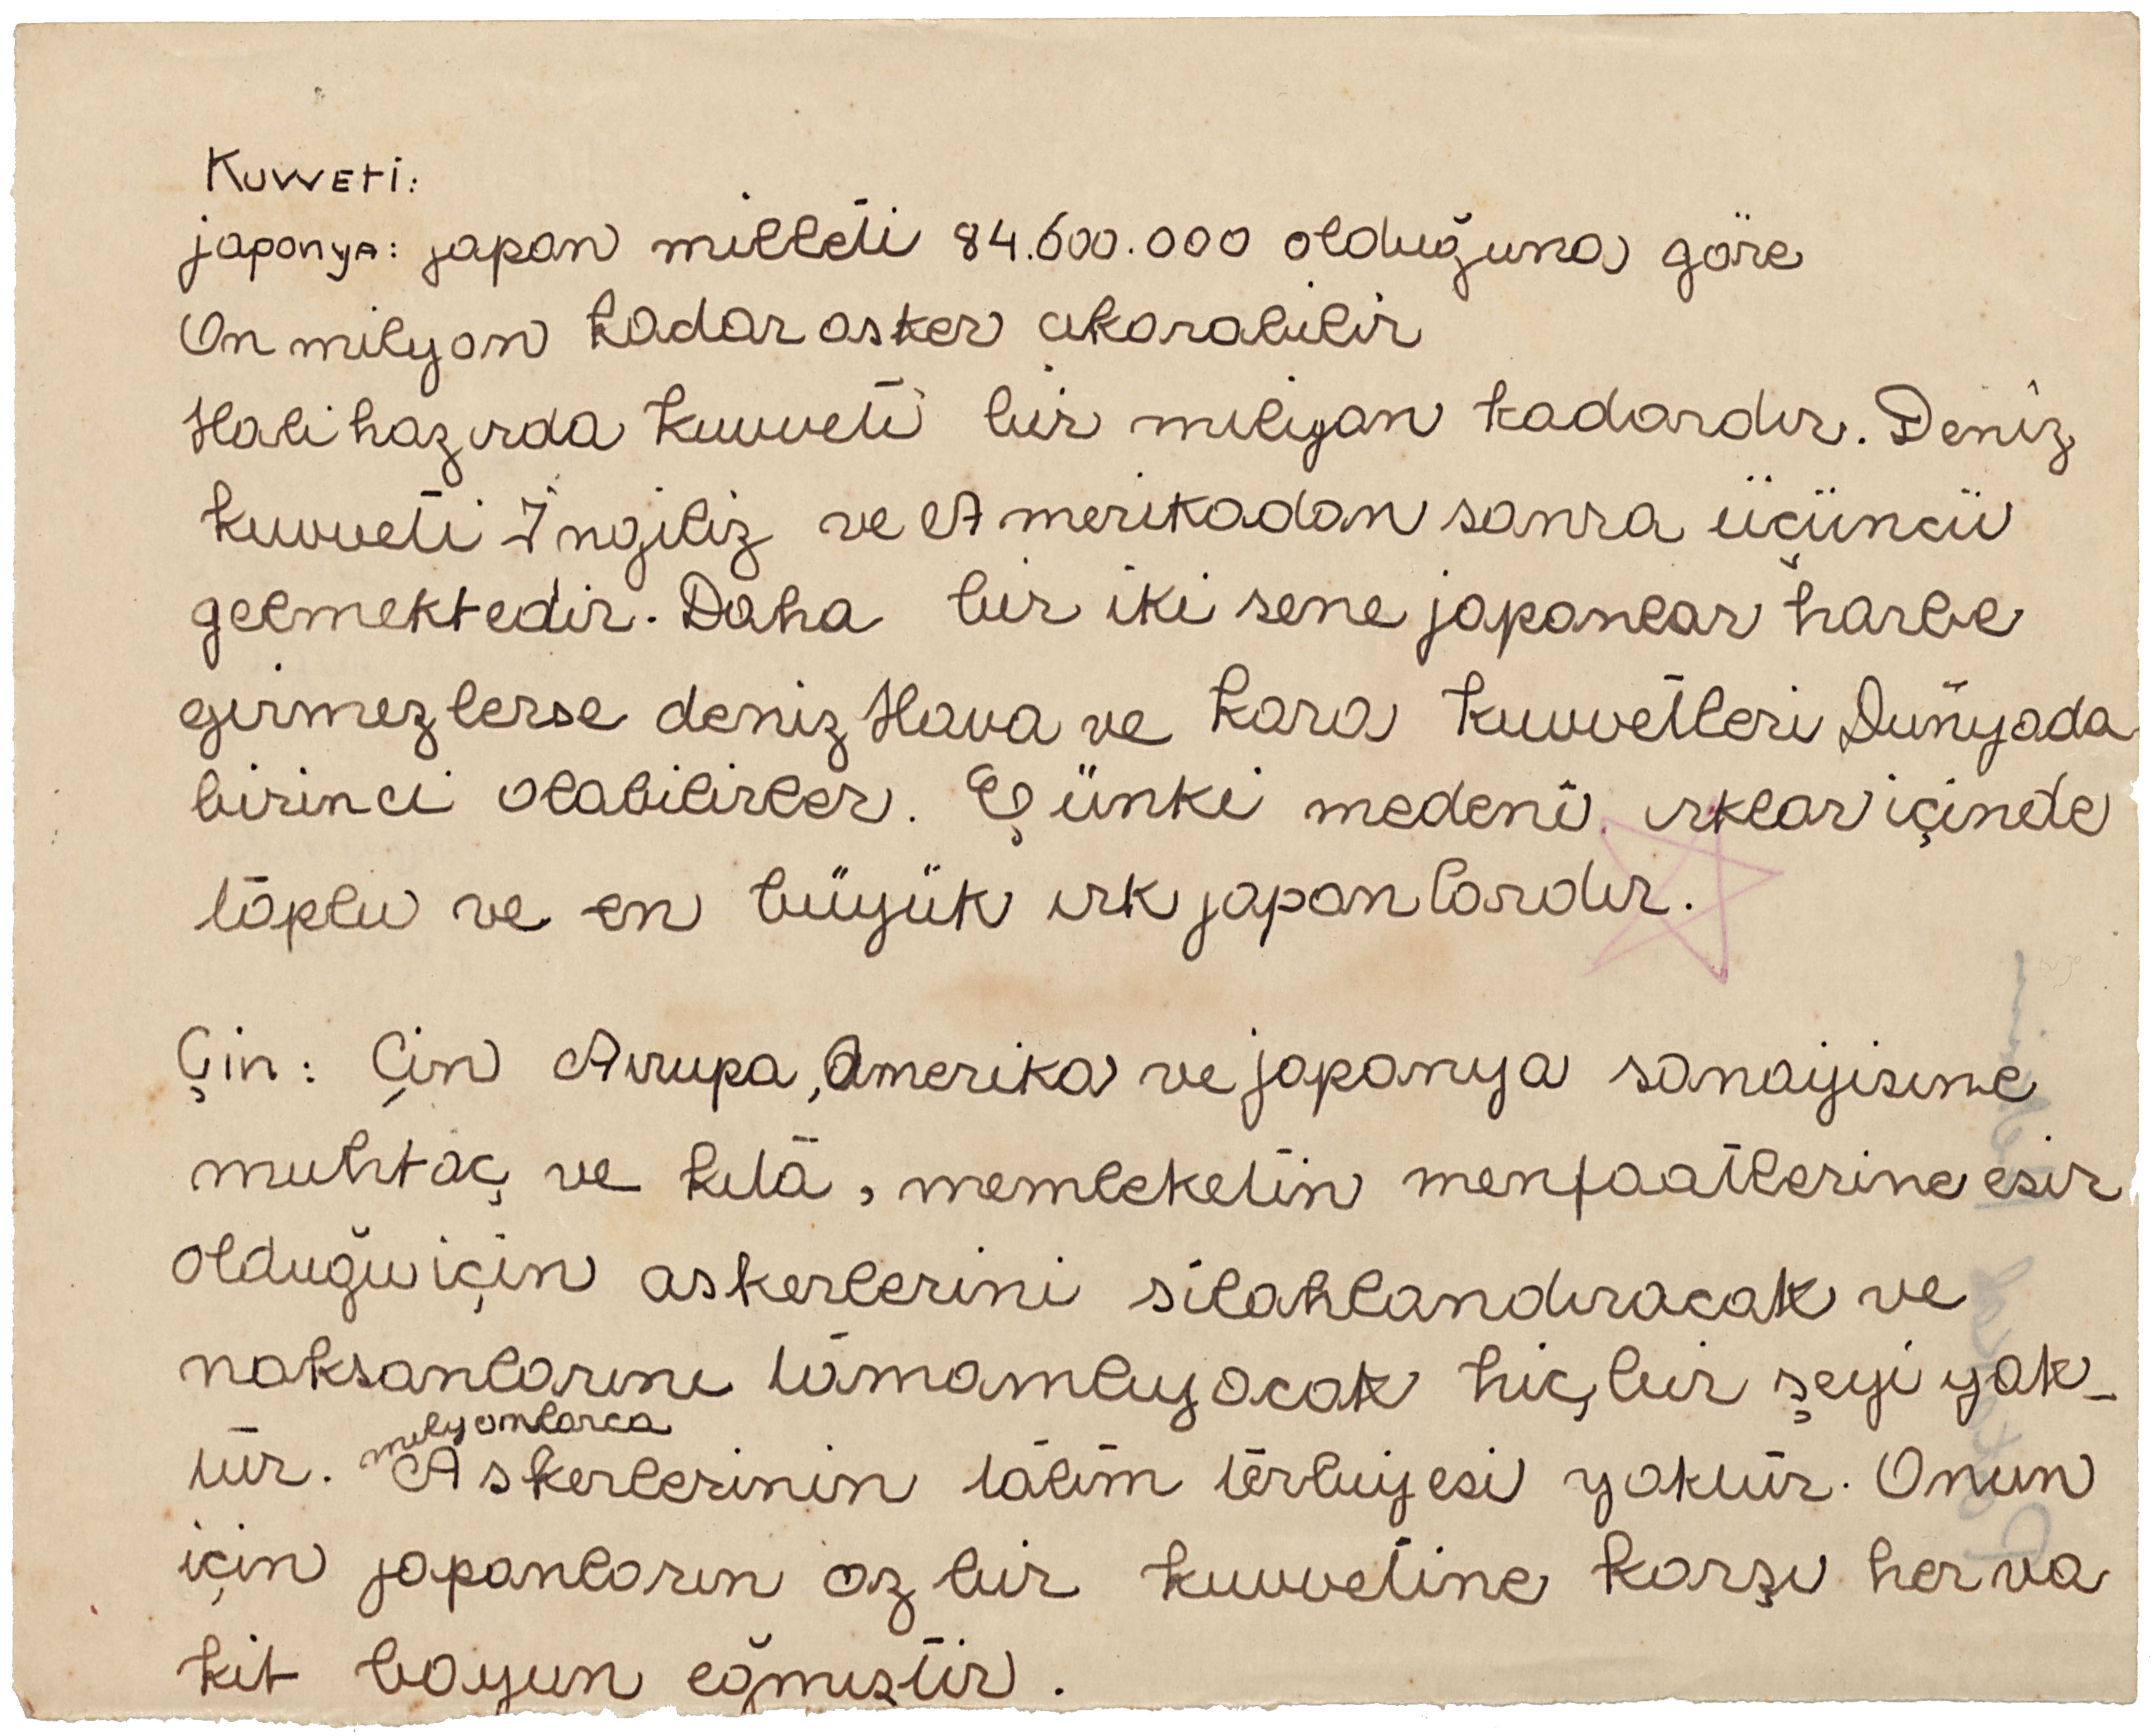 Kuvveti:
japonya: japon milleti 84.600.000 olduğuna göre
On milyon kadar asker cıkarabilir
Halihazırda kuvveti bir miliyon kadardır. Deniz
kuvveti İngiliz ve Amerikadan sonra üçüncü
gelmektedir. Daha bir iki sene japonlar harbe
girmezlerse deniz Hava ve kara kuvvetleri Dünyada
birinci olabilirler. Çünki medeni ırklar içinde
toplu ve en büyük ırk japonlardır.
Çin: Çin Avrupa, Amerika ve japonya sanayisine
muhtaç ve kıta, memleketin menfaatlerine esir
olduğu için askerlerini silahlandıracak ve
noksanlarını tamamlıyacak hiç bir şeyi yok-
tur. milyonlarca Askerlerinin talim terbiyesi yoktur. Onun
için japonların az bir kuvvetine karşı her va
kit boyun eğmıştir.